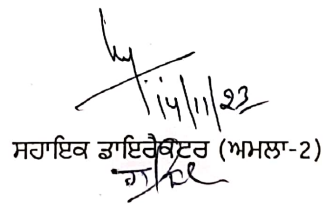 14/11/23
ਸਹਾਇਕ ਡਾਇਰੈਕਟਰ (ਅਮਲਾ-2)